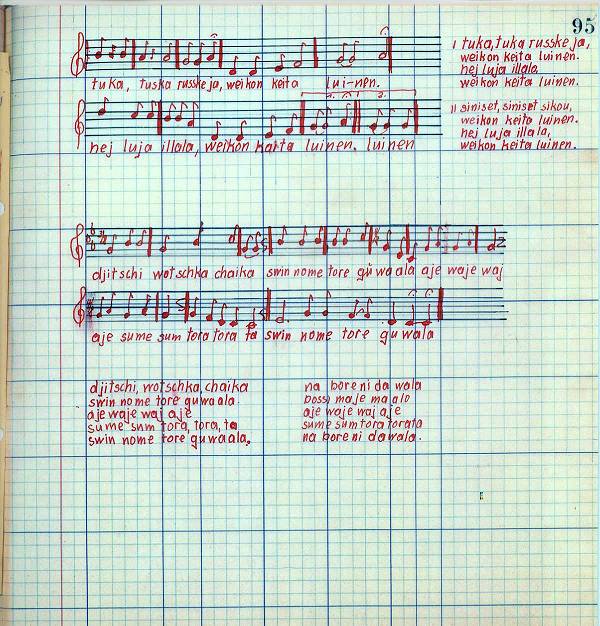 95
tuka, tuska russkeja, weikon keita lui-nen.
hej luja illala, weikon kaita luinen. luinen
1. 2.
I tuka, tuka russkeja,
weikon keita luinen.
hej luja illale,
weikon keita luinen.
II siniset, siniset sikou,
weikon keita luinen.
hej luja illala,
weikon keita luinen.
djitschi wotschka chaika swin nome tore guwaala aje waje waj
aje sume sum tora tora ta swin nome tore guwala
djitschi, wotschka, chaika
swin nome tore guwaala.
aje waje waj aje
sume snm tora, tora, ta
swin nome tore guwaala.
na bore ni da wala
bossi maje maalo
aje waje waj aje
sume sum tora torata
na bore ni dawala.